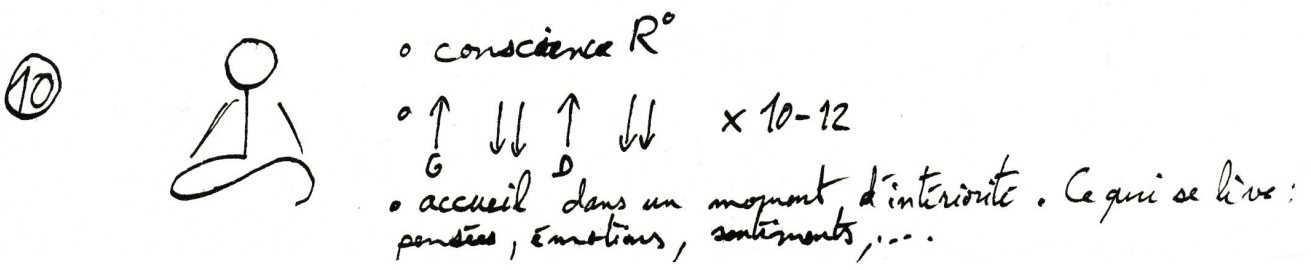 10
• conscience R°
• ↑ ↓↓ ↑ ↓↓ x 10-12
G D
• accueil dans un moment d'intériorité. Ce qui se live :
pensées, émotions, sentiments, ....